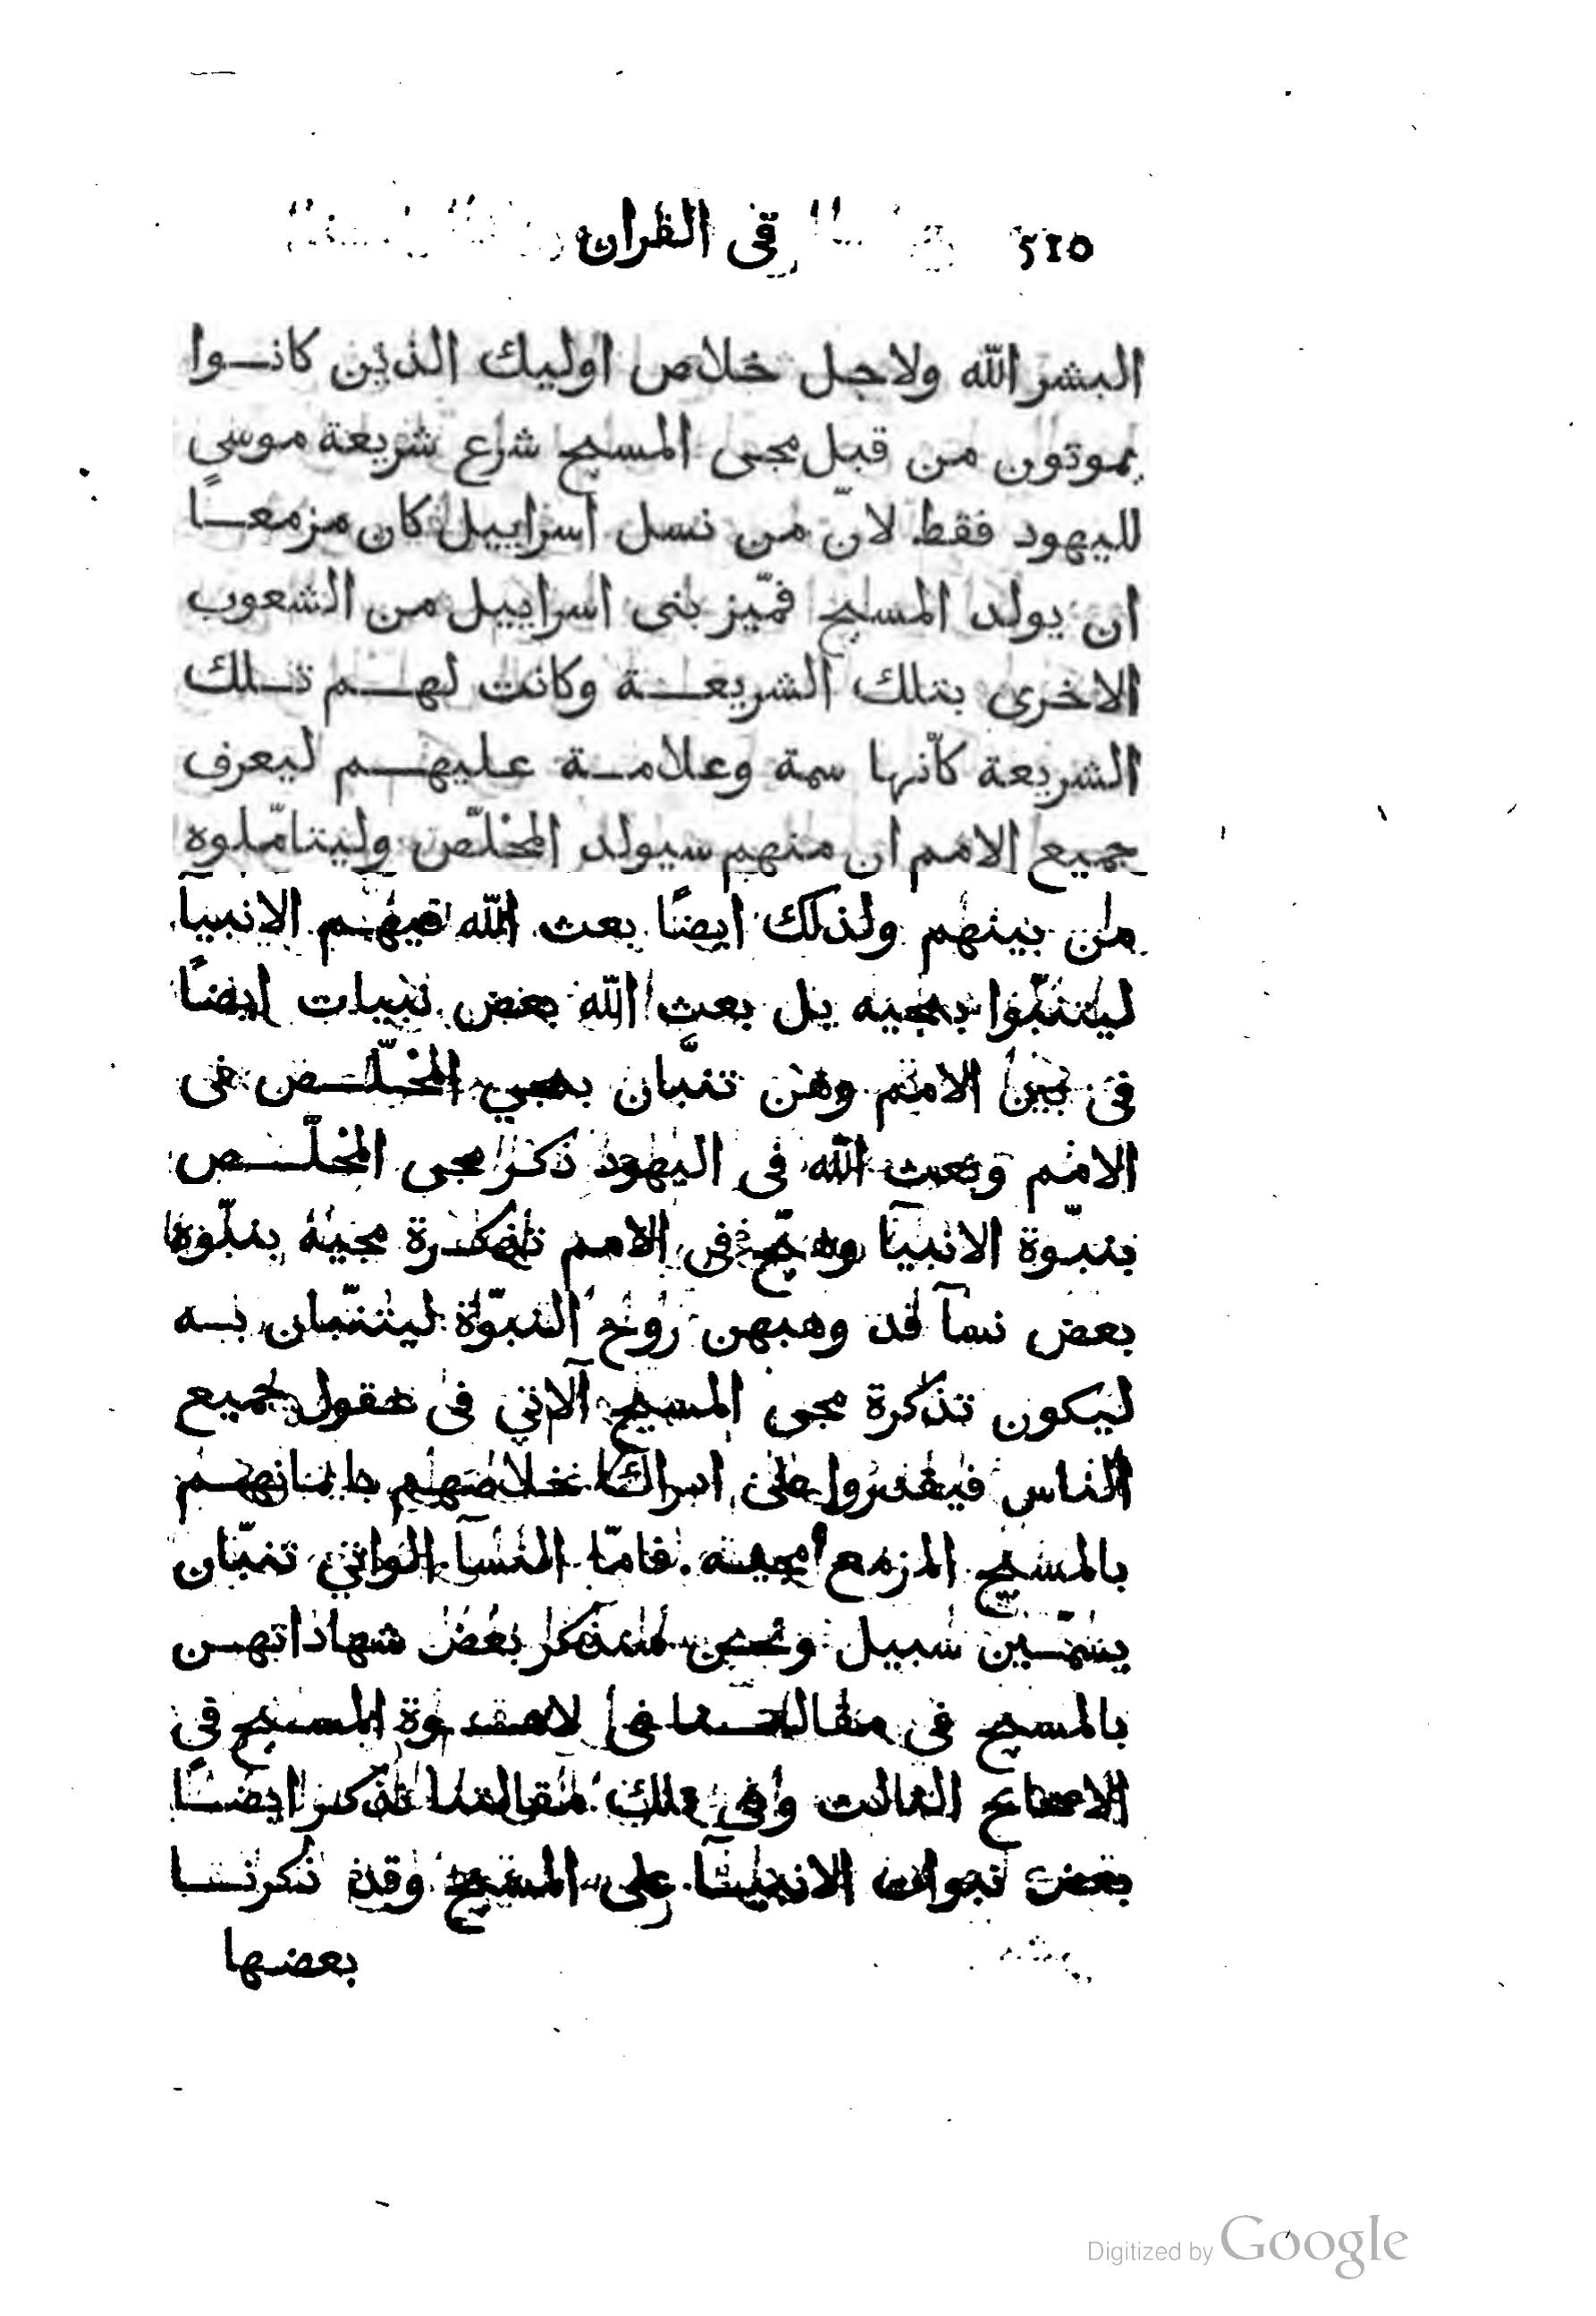 510 فى القران
البشر الله ولاجل خلاص اوليك الذين كانـوا
يموتون من قبل مجى المسيح شرع شريعة موسى
لليهود فقط لانّ من نسل اسراييل كان مزمعـًا
ان يولد المسيح فميّز بنى اسراييل من الشعوب
الاخرى بتلك الشريعـة وكانت لهـم تـلك
الشريعة كانّها سمة وعلامـة عليهـم ليعرف
جميع الامم ان منهم سيولد المخلّص وليتاملّوه
من بينهم ولذلك ايضًا بعث الله فيهم الانبيآ
ليتنبّوا بمجيه بل بعث الله بعض نبيات ايضًا
فى بين الامم وهن تنبّان بمجي المخلّـص فى
الامم وبعث الله فى اليهود ذكر مجى المخلّـص
بنبوّة الانبيآ فى الامم تذكـرة مجيه بنبوّة
بعض نسآ قد وهبهن روح النبوّة ليتنبّان بـه
ليكون تذكرة مجى المسيح الآتي فى عقول جميع
الناس فيقدروا على ادراك خلاصهم بايمانهـم
بالمسيح المزمع مجيـه. فامّا النسآ الواتي تنبّان
يسمّـين سبيل ونحـن سنذكر بعض شهاداتهـن
بالمسيح فى مقالتـنا المسيح في
الاصحاح الثالث وفى تلك مقالتنا نذكر ايضـًا
بعض نبوات الانبيـآ على المسيح وقد ذكرنـا
بعضها
Digitized by Google